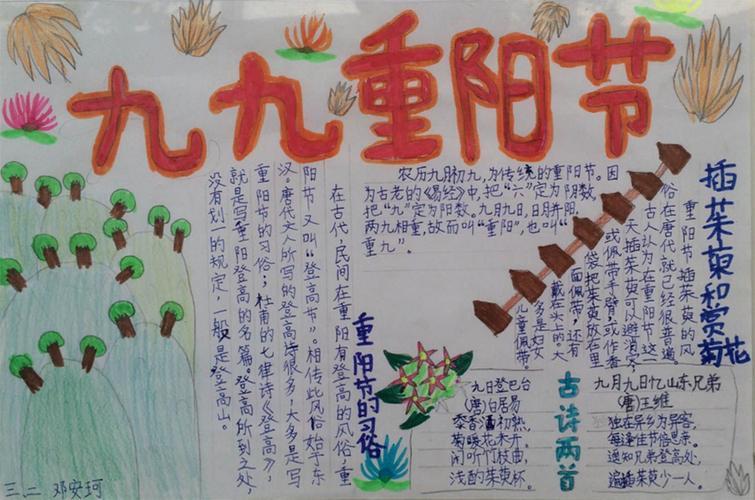 九九重阳节
农历九月初九,为传统的重阳节。因
为古老的《易经》中,把“六”定为阴数
把“九”定为阳数。九月九日,日月并阳,
两九相重,故而叫“重阳”,也叫“
重九”。
插茱萸和赏菊花
重阳节插茱萸的风
俗在唐代就已经很普遍。
古人认为在重阳节这一
天插茱萸可以避消灾;
或佩带手臂,或作香
袋把茱萸放在里
面佩带,还有
戴在头上的大
多是妇女
儿童佩带。
重阳节的习俗
在古代,民间在重阳有登高的风俗,重
阳节又叫“登高节”。相传此风俗始于东
汉。唐代文人所写的登高诗很多,大多是写
重阳节的习俗;杜甫的七律诗《登高》,
就是写重阳登高的名篇。登高所到之处,
没有划一的规定,一般是登高山。
古诗两首
九日登巴台
(唐)白居易
黍香酒初熟,
菊暖花未开。
闲听竹枝曲,
浅酌茱萸杯。
九月九日忆山东兄弟
(唐)王维
独在异乡为异客,
每逢佳节倍思亲。
遥知兄弟登高处,
遍插茱萸少一人。
三、二 邓安珂